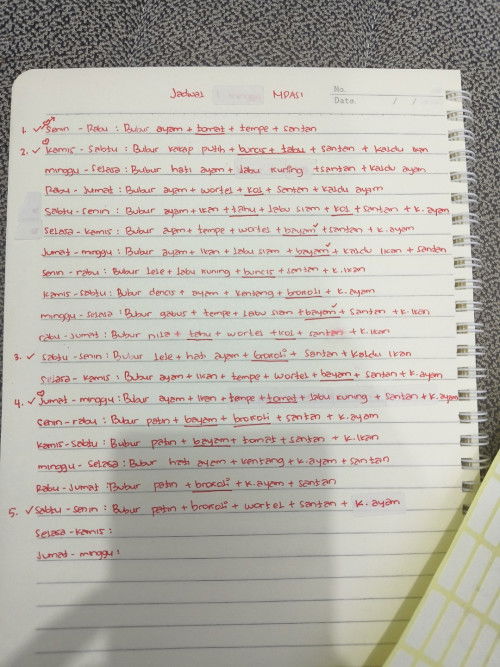 Jadwal MPASI
No.
Date. / /
1. ✓ Senin - Rabu : Bubur ayam + tomat + tempe + santan
2. ✓ Kamis - Sabtu : Bubur kakap putih + buncis + tahu + santan + kaldu ikan
minggu - selasa : Bubur hati ayam + labu kuning + santan + kaldu ayam
Rabu - Jumat : Bubur ayam + wortel + kol + santan + kaldu ayam
Sabtu - Senin : Bubur ayam + ikan + tahu + labu siam + kol + santan + k. ayam
Selasa - Kamis : Bubur ayam + tempe + wortel + bayam ✓ + santan + k. ayam
Jumat - minggu : Bubur ayam + ikan + labu siam + bayam ✓ + kaldu ikan + santan
Senin - rabu : Bubur lele + labu kuning + buncis + santan + k. ikan
Kamis - Sabtu : Bubur dencis + ayam + kentang + brokoli + k. ayam
minggu - selasa : Bubur gabus + tempe + labu siam + bayam ✓ + santan + k. ikan
rabu - jumat : Bubur nila + tahu + wortel + kol + santan + k. ikan
3. ✓ Sabtu - senin : Bubur lele + hati ayam + brokoli + santan + kaldu ikan
Selasa - Kamis : Bubur ayam + ikan + tempe + wortel + bayam + santan + k. ayam
4. ✓ Jumat - minggu : Bubur ayam + ikan + tempe + tomat + labu kuning + santan + k. ayam
Senin - rabu : Bubur patin + bayam + brokoli + santan + k. ayam
Kamis - Sabtu : Bubur patin + bayam + tomat + santan + k. ikan
minggu - selasa : Bubur hati ayam + kentang + k. ayam + santan
Rabu - Jumat : Bubur patin + brokoli + k. ayam + santan
5. ✓ Sabtu - senin : Bubur patin + brokoli + wortel + santan + k. ayam
Selasa - Kamis :
Jumat - minggu :